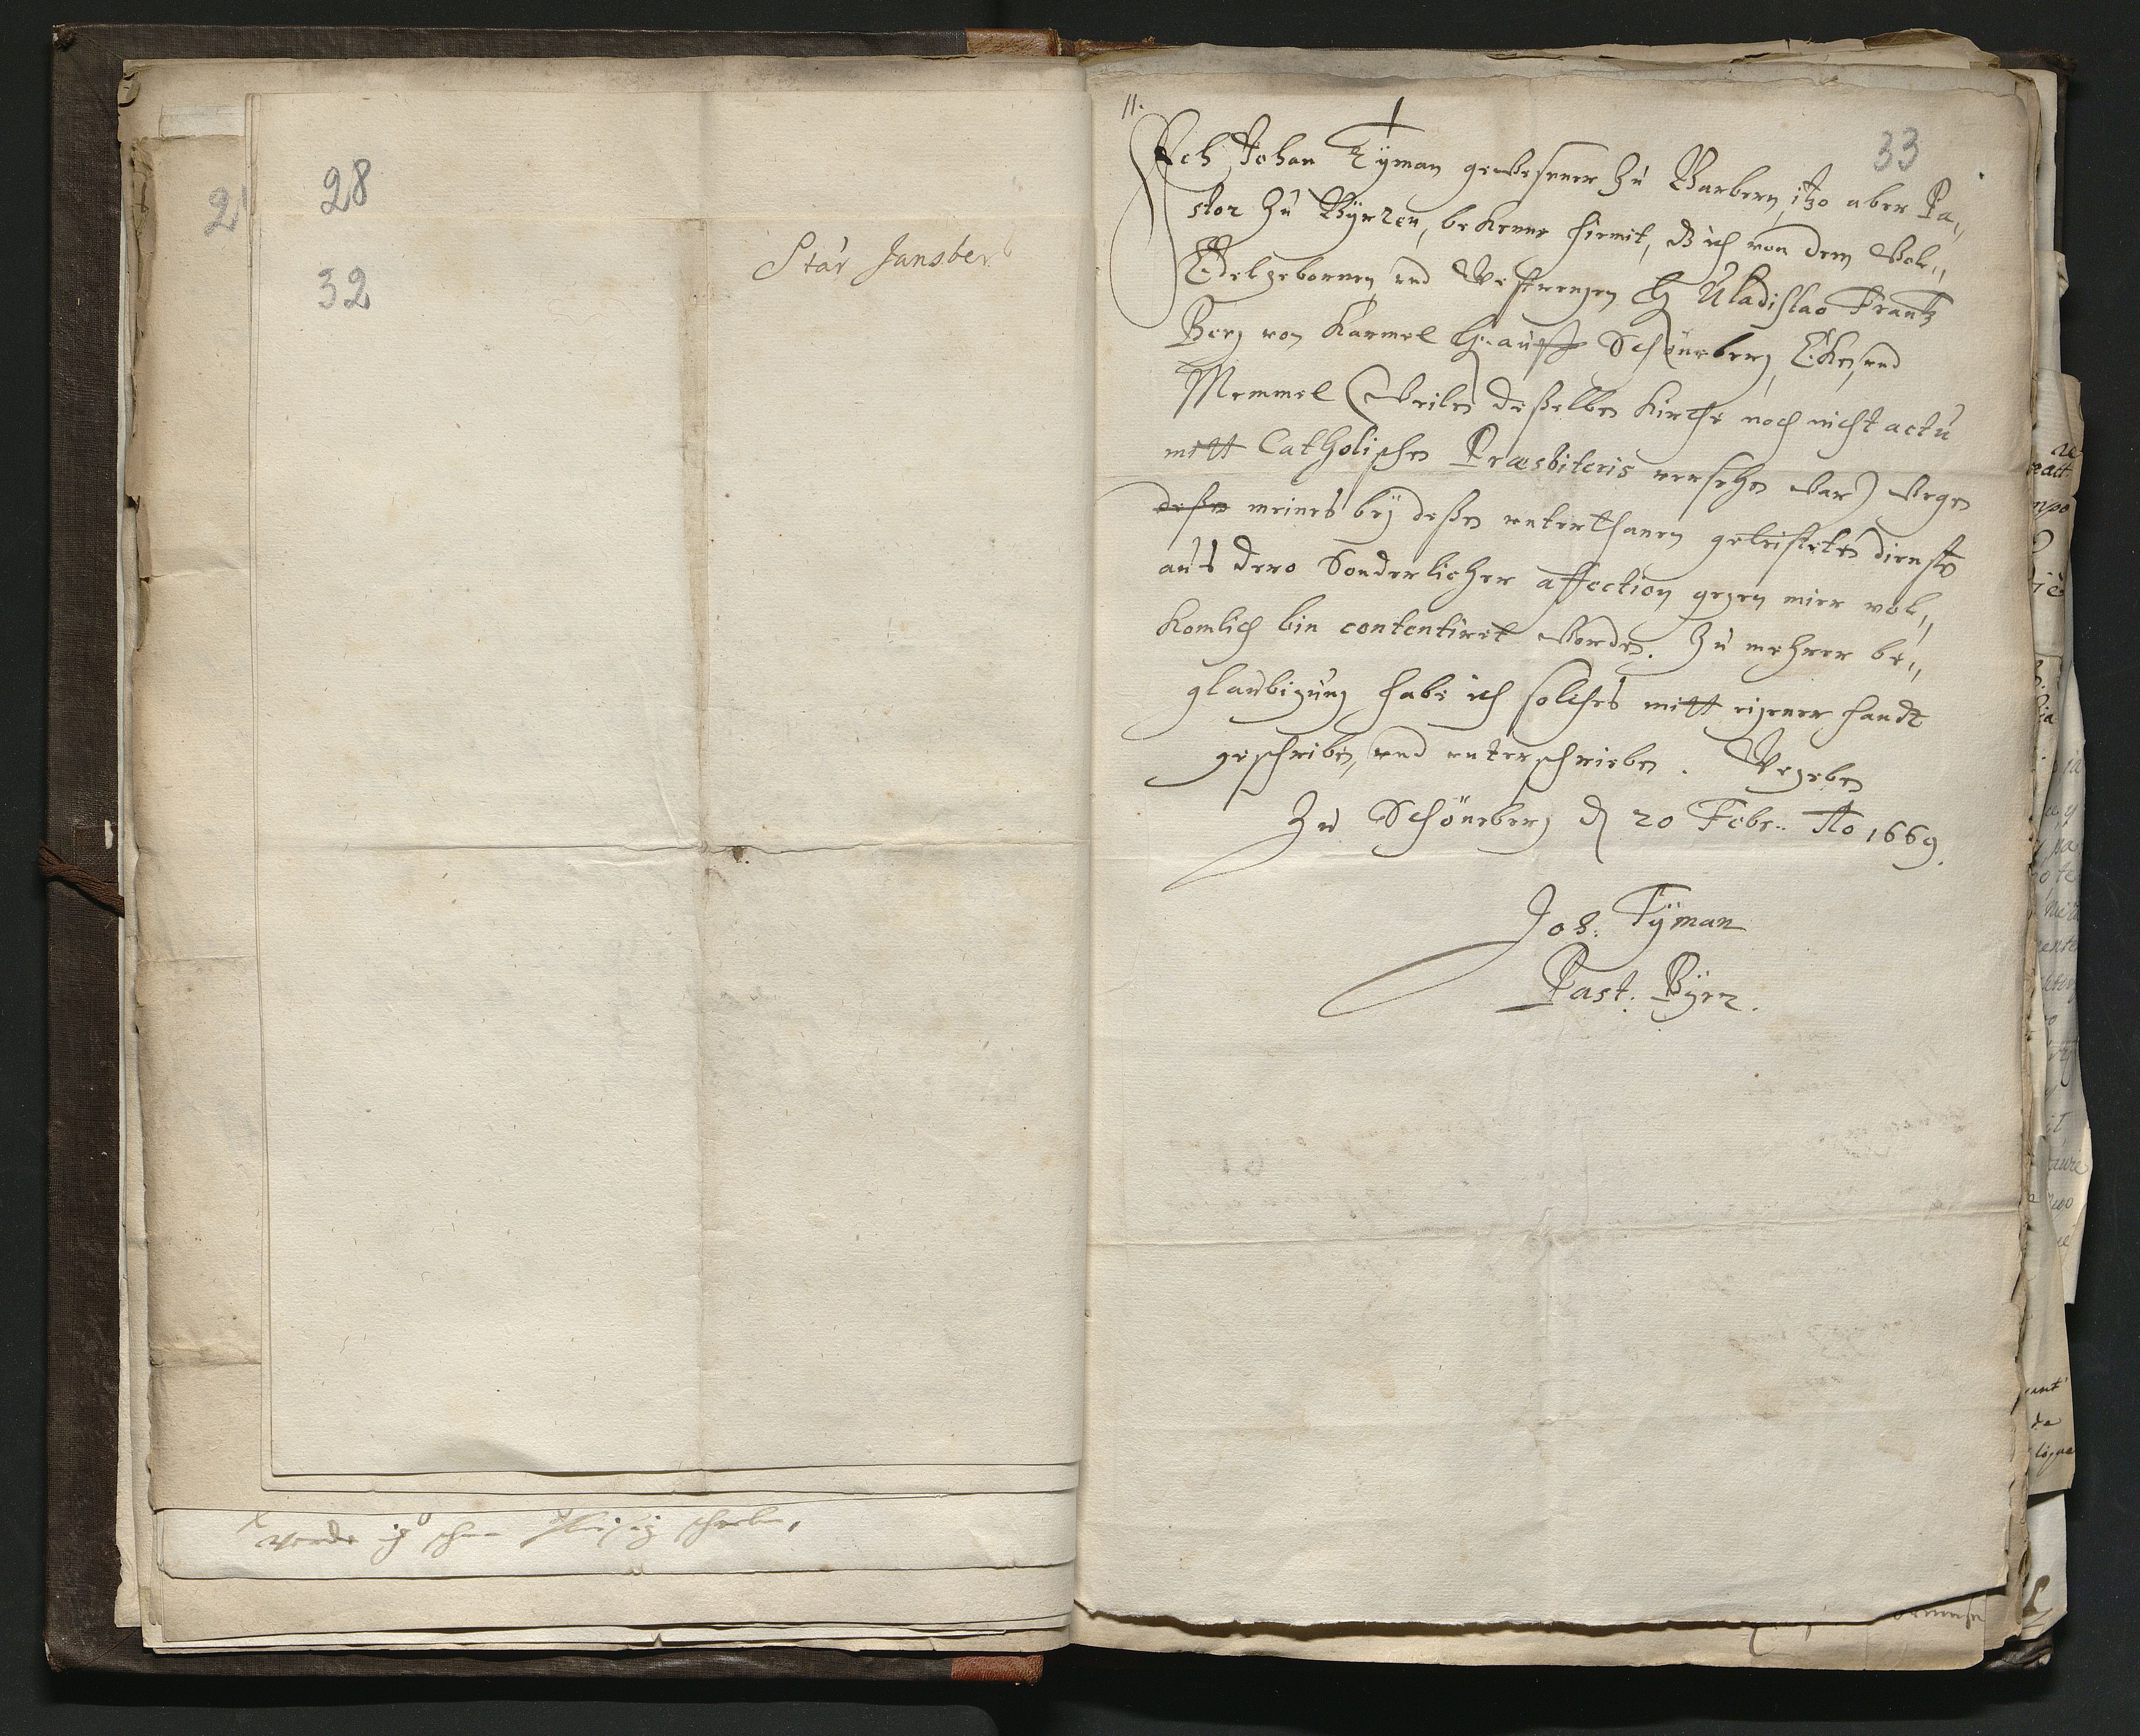 21
28
32
Star Jansber
werde ich schreiben,
11.
33
Ich Johan Tÿman gewesener zu Barbern, itzo aber Pa„
stor zu Bÿrzen, bekenne hiemit, dß ich von dem Wol„
Edelgebornen und Gestrengen H Uladislao Frantz
Berg von Karmel H: auff Schöneberg, Eken, und
Memmel (Weilen deßelben Kirche noch nicht actu
mitt Catholischen Præsbiteris versehen war) wegen
deßen meines beÿ deßen unterthanen geleisteten dienste
aus dero Sonderlicher affection gegen mier vol„
Komlich bin contentiret worden. Zu mehrer be„
glaubigung habe ich solches mitt eigener handt
geschrieben, und unterschrieben. Gegeben
Zu Schöneberg d 20 Febr: Ao 1669.
Joh: Tÿman
Past. Bÿrz.